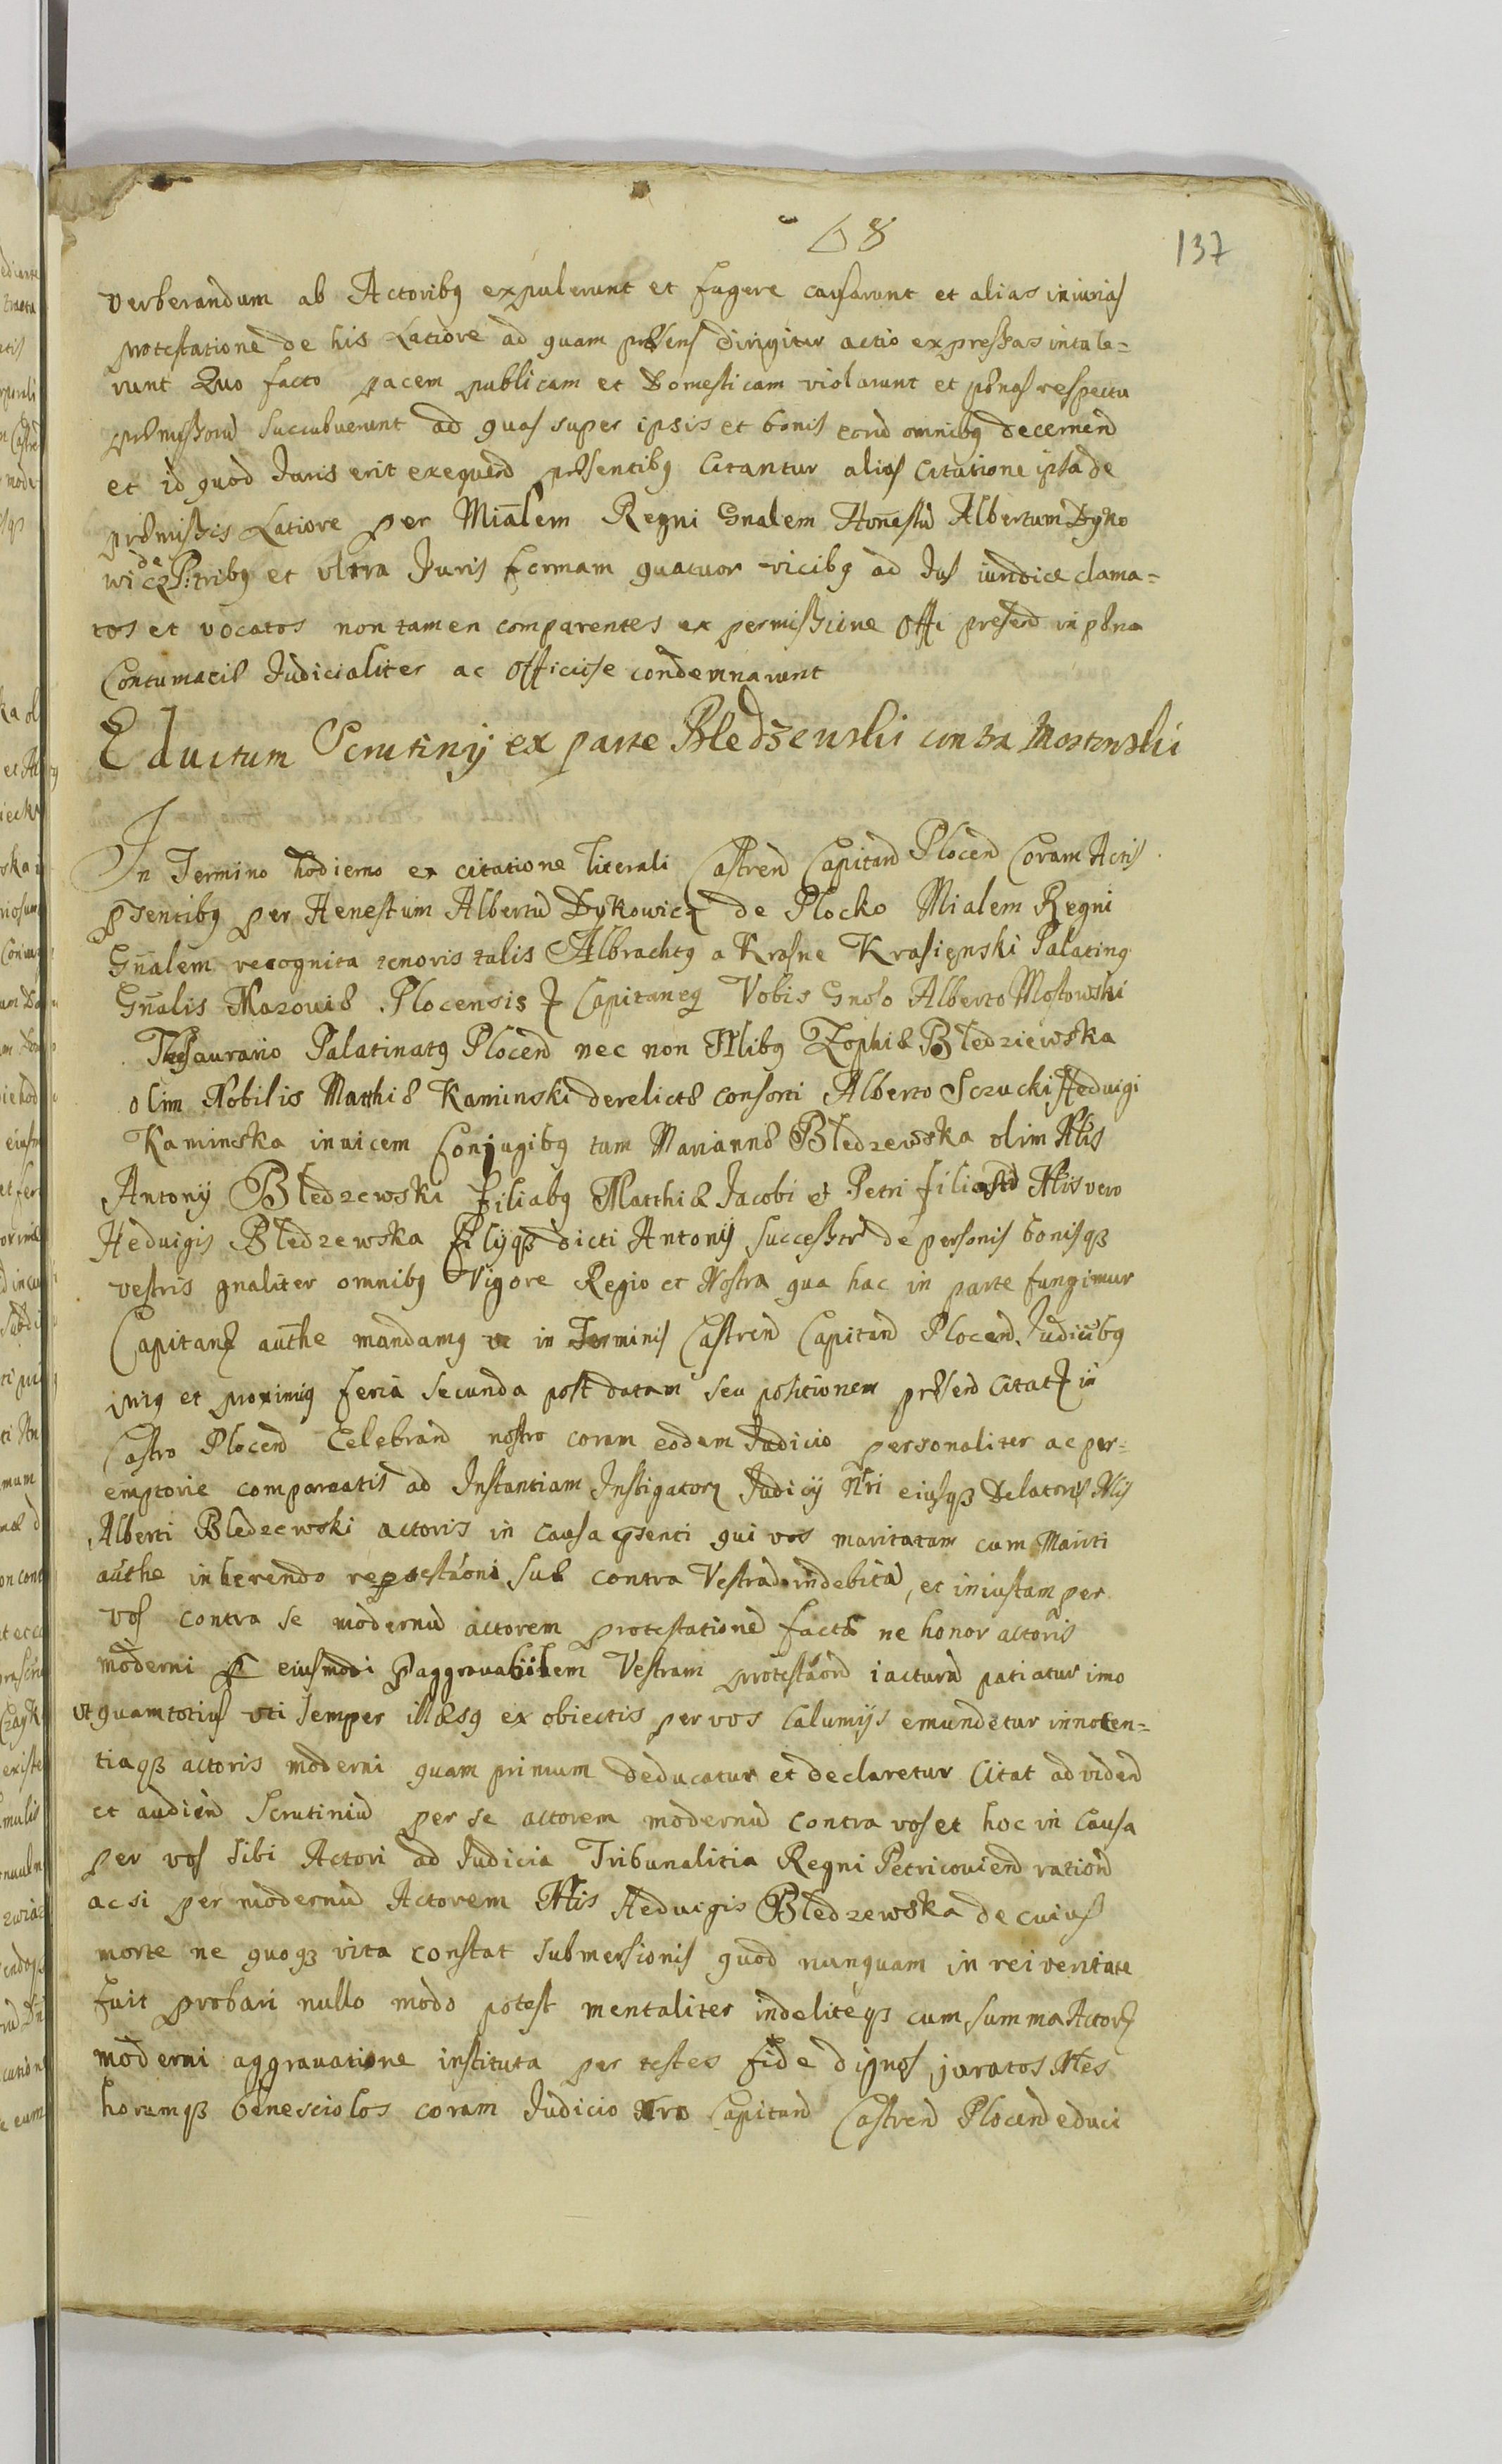 68
137
verberandum ab Actoribq expulerunt et fugere causarunt et alias iniurias
protestatione de his Latiore ad quam præsens dirigitur actio expressas intule=
runt Quo facto pacem publicam et Domesticam violarunt et pænas respectu
præmissorū succubuerunt ad quas super ipsis et bonis eorū omnibq decernend
et id quod Juris erit exequend præsentibq Citantur alias Citatione ipsa de
præmissis Latiore per Mialem Regni Gnalem Honestū Albertum Dyko
wicz de et ultra Juris formam quatuor vicibq ad Jus iuridice clama=
tos et vocatos non tamen comparentes ex permissione Offi presend in pæna
Contumaciæ Judicialiter ac Officiose condemnarunt
Eductum Scrutinÿ ex parte Bledzewski contra Mostowski
In Termino hodierno ex citatione literali Castrend Capitand Plocend Coram Actis
psentibq per Honestum Albertū Dykowicz de Plocko Mialem Regni
Gnalem recognita tenoris talis Albrachtq a Krasne Krasięnski Palatinq
Gnalis Mazoviæ Plocensis Capitaneq Vobis Gnoso Alberto Mostowski
Thesaurario Palatinatq Plocend nec non Nlibq Zophiæ Błedziewska
olim Nobilis Matthiæ Kaminski derelictæ consorti Alberto Sczucki Heduigi
Kaminska inuicem Conjugibq tum Mariannæ Błedzewska olim Nlis
Antonÿ Błedzewski filiabq Matthiæ Jacobi et Petri Nlis vero
Heduigis Błedzewska filÿqz dicti Antonÿ Successor de personis bonisqz
vestris gnaliter omnibq Vigore Regio et Nostra qua hac in parte fungimur
Capitan authe mandamq ut in Terminis Castrend Capitand Plocend Judicibq
et proximiq feria secunda post datam seu positionem præsend Citat in
Castro Plocend Celebrand nostro coram eodem Judicio personaliter ac per=
emptorie compareatis ad Instantiam Instigatorz Judicÿ Nri eiusqz Delatoris Nlis
Alberti Bledzewski actoris in causa psenti qui vos maritatam cum Mariti
authe inherendo reprotestaoni suæ contra Vestrā indebitā, et iniustam per
vos contra se modernū actorem protestationē factæ ne honor actoris
moderni eiusmodi Vestram protestaord iacturā patiatur imo
ut quamtotius uti semper illæsq ex obiectis per vos Calumÿs emundetur innocen=
tiaqz actoris moderni quam primum deducatur et declaretur Citat ad videnđ
et audienđ Scrutiniū per se actorem modernū contra vos et hoc in Causa
per vos sibi Actori ad Judicia Tribunalitia Regni Petricouiend rationē
ac si per modernū Actorem Nlis Heduigis Błedzewska de cuius
morte ne quoqz vita constat submersionis quod nunquam in rei veritate
fuit probari nullo modo potest mentaliter indebiteqz cum summa Actorz
moderni aggrauatione instituta per testes fide dignos juratos Nles
horumqz bene sciolos coram Judicio Nro Capitand Castrend Plocend educi